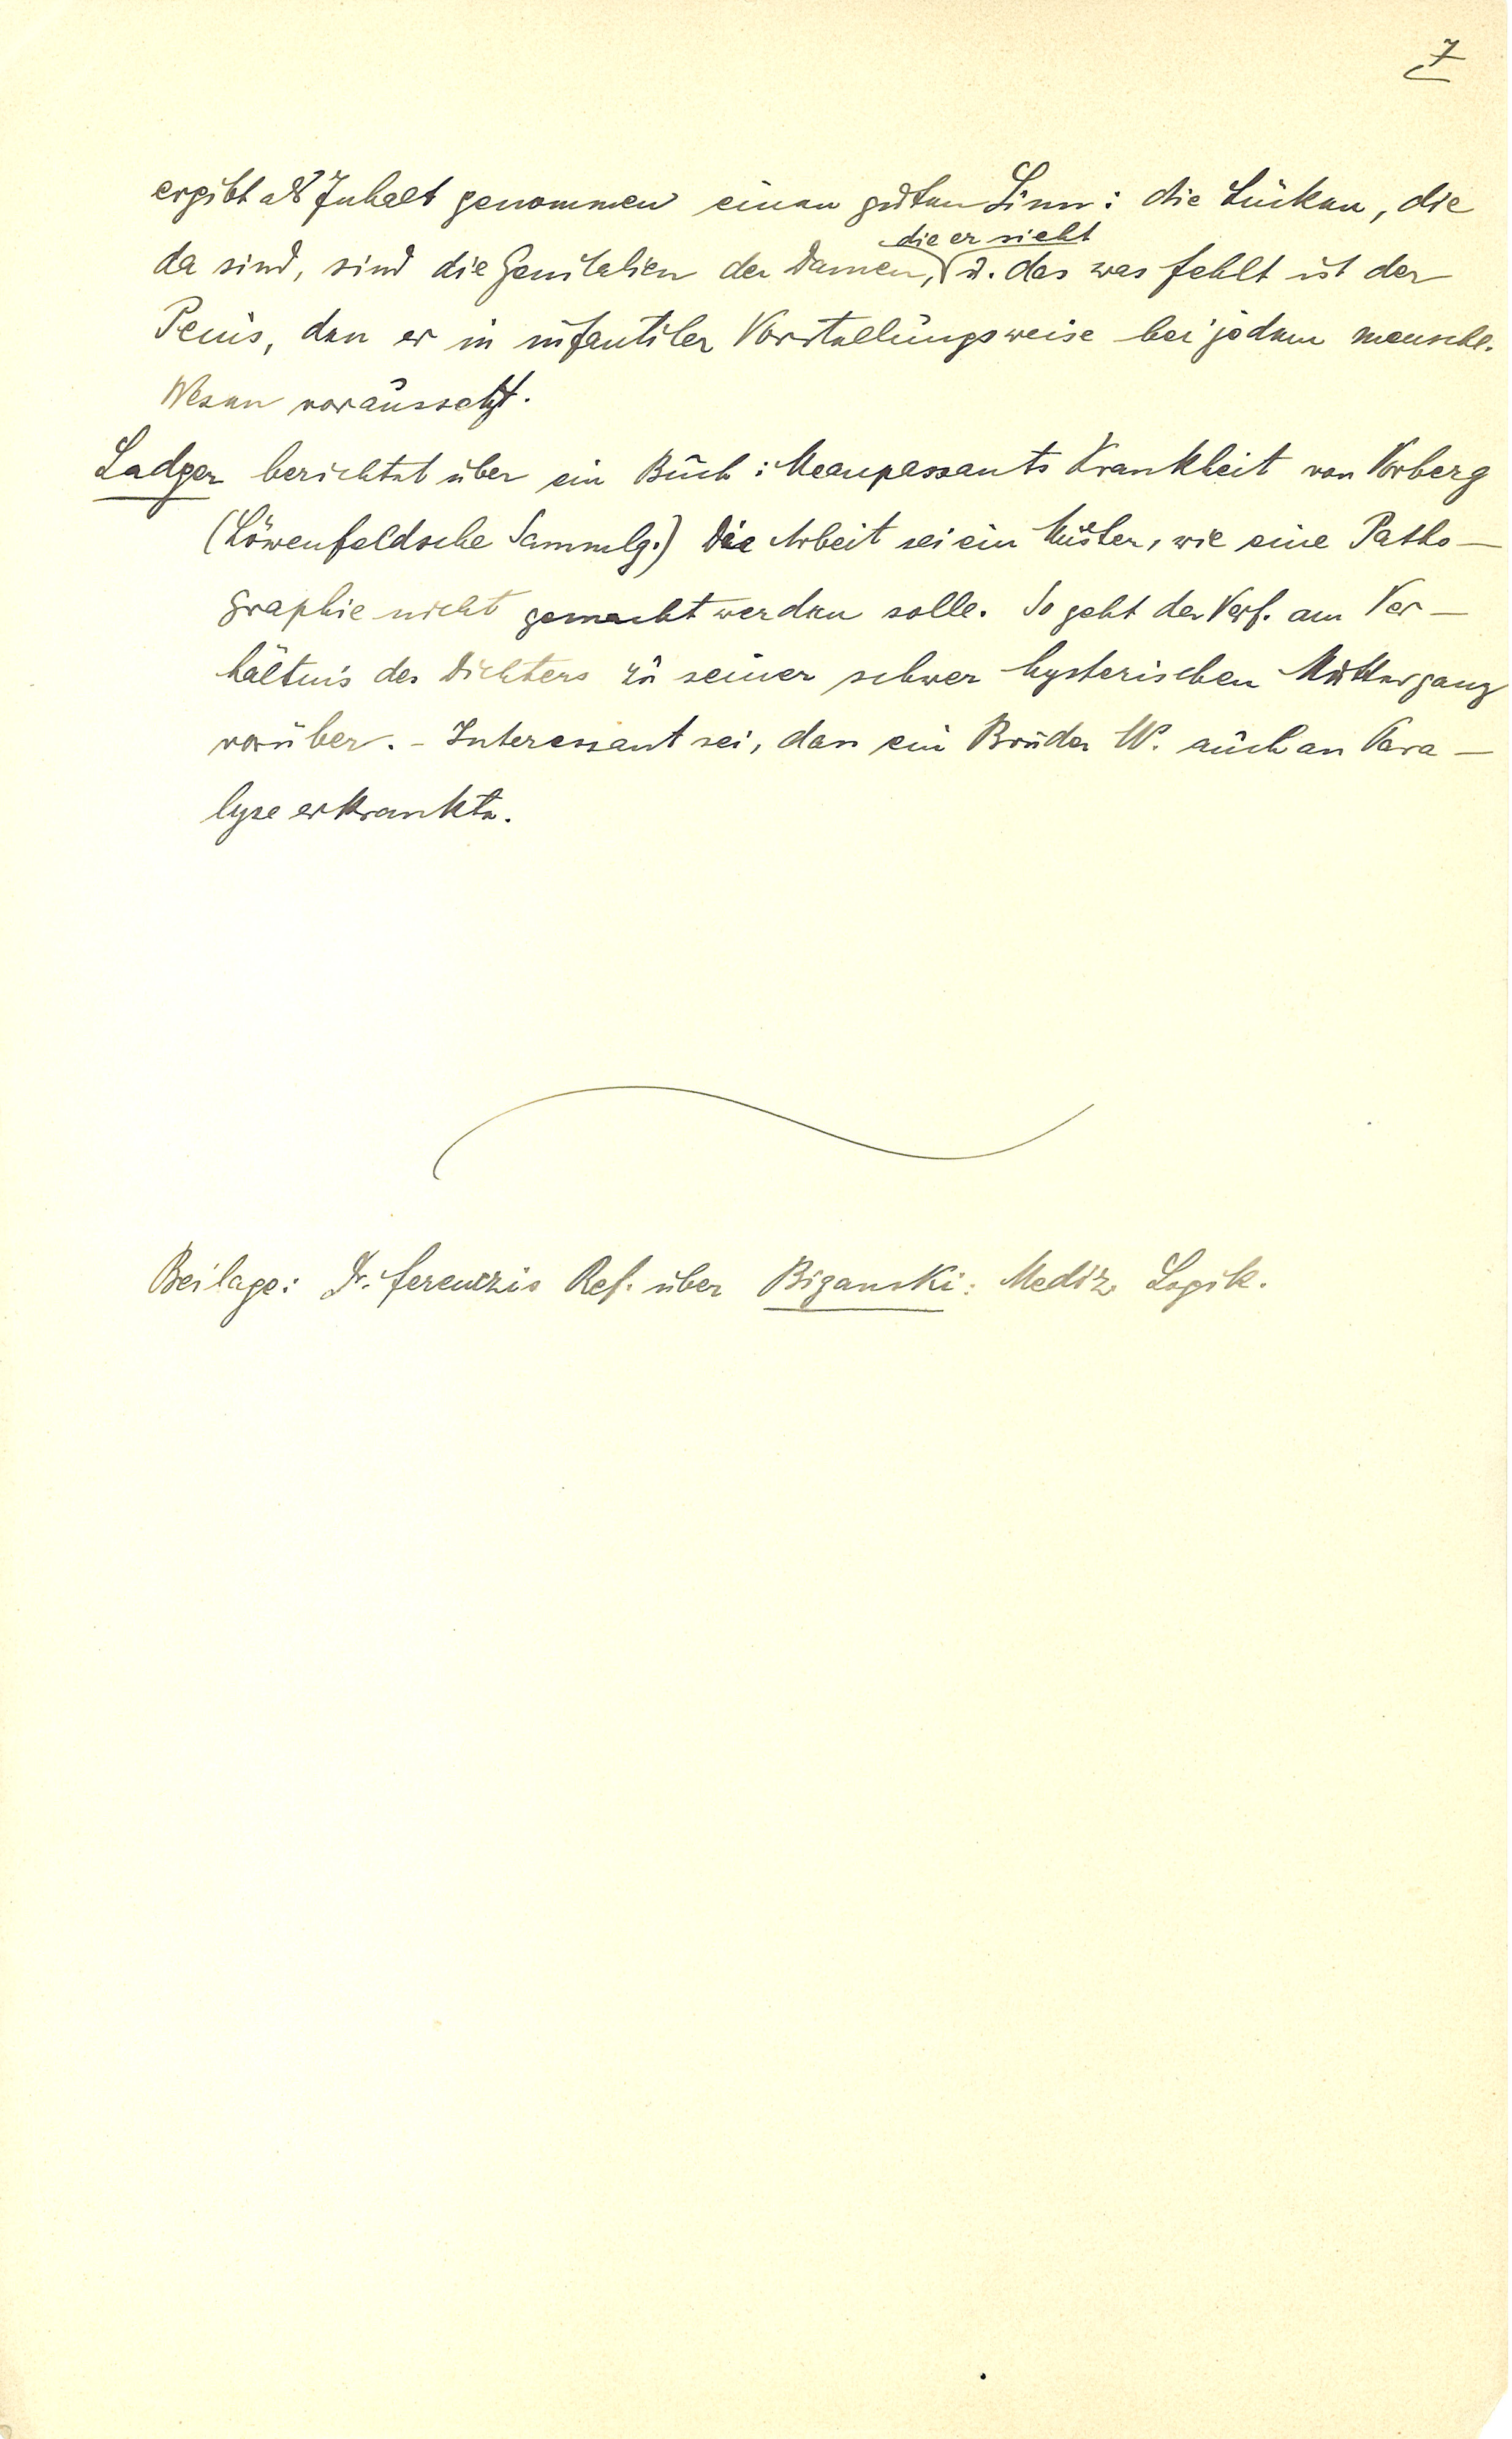 7
ergibt als Inhalt genommen einen guten Sinn: die Lücken, die
die er sieht
da sind, sind die Genitalien der Damen, u. das was fehlt ist der
Penis, den er in infantiler Vorstellungsweise bei jedem menschl.
Wesen voraussetzt.
Sadger berichtet über ein Buch: Maupassants Krankheit von Vorberg
(Löwenfeldsche Sammlg.) Die Arbeit sei ein Muster, wie eine Patho-
graphie nicht gemacht werden solle. So geht der Verf. am Ver-
hältnis des Dichters zu seiner schwer hysterischen Mutter ganz
vorüber. - Interessant sei, dass ein Bruder M. auch an Para-
lyse erkrankte.
Beilage: Dr. Ferenczis Ref. über Biganski: Mediz. Logik.